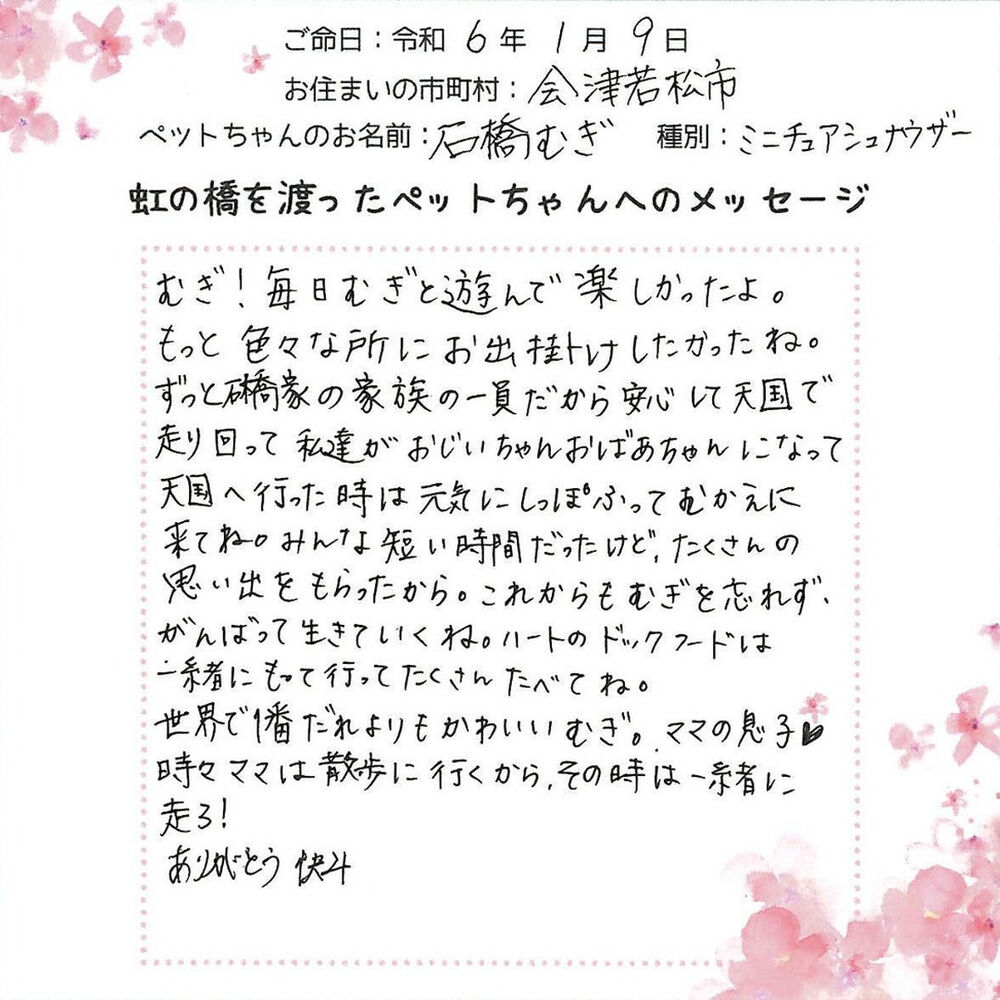 ご命日：令和 6 年 1 月 9 日
お住まいの市町村：会津若松市
ペットちゃんのお名前：石橋むぎ 種別：ミニチュアシュナウザー
虹の橋を渡ったペットちゃんへのメッセージ
むぎ！毎日むぎと遊んで楽しかったよ。
もっと色々な所にお出掛けしたかったね。
ずっと石橋家の家族の一員だから安心して天国で
走り回って私達がおじいちゃんおばあちゃんになって
天国へ行った時は元気にしっぽふってむかえに
来てね。みんな短い時間だったけど、たくさんの
思い出をもらったから。これからもむぎを忘れず、
がんばって生きていくね。ハートのドックフードは
一緒にもって行ってたくさんたべてね。
世界で1番だれよりもかわいいむぎ。ママの息子♥
時々ママは散歩に行くから、その時は一緒に
走ろ！
ありがとう 快斗